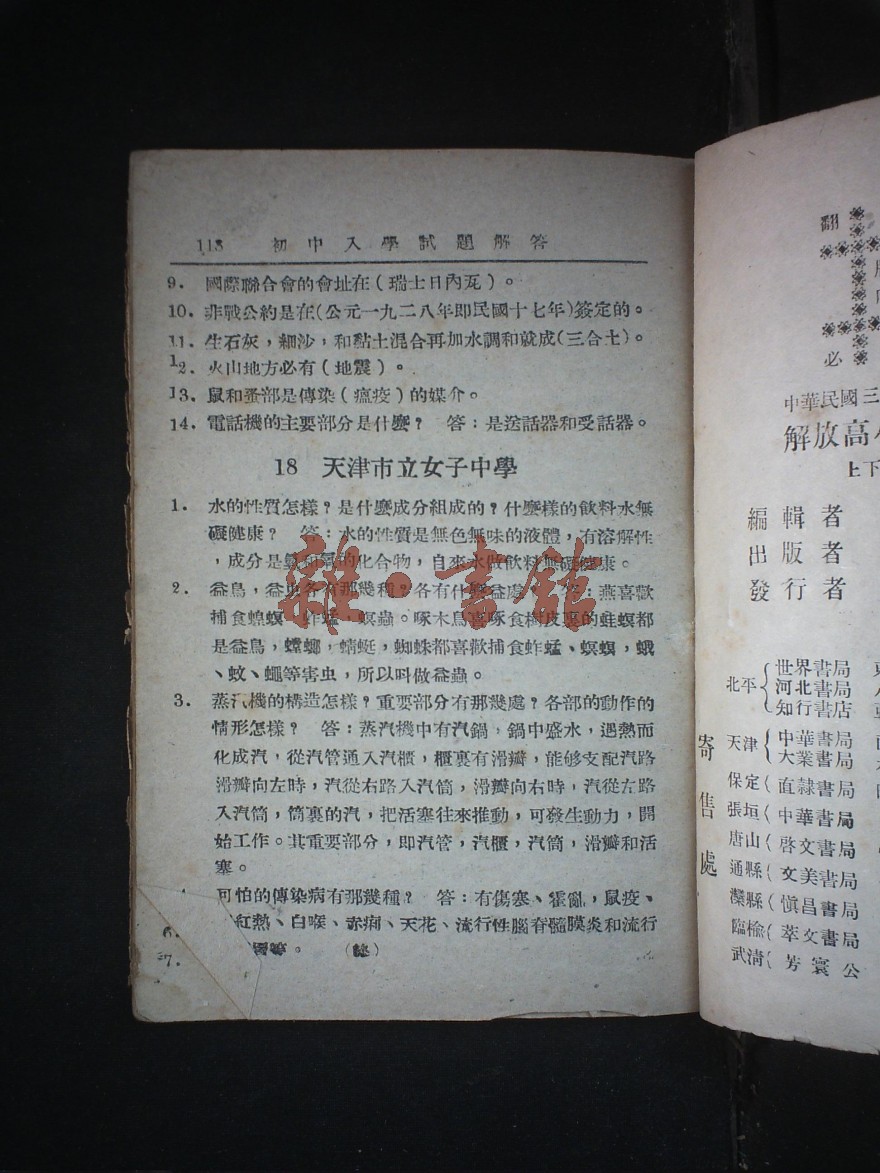 118 初中入學試題解答
9. 國際聯合會的會址在(瑞士日內瓦)。
10. 非戰公約是在(公元一九二八年即民國十七年)簽定的。
11. 生石灰,細沙,和黏土混合再加水調和就成(三合土)。
12. 火山地方必有(地震)。
13. 鼠和蚤部是傳染(瘟疫)的媒介。
14. 電話機的主要部分是什麼? 答:是送話器和受話器。
18 天津市立女子中學
1. 水的性質怎樣?是什麼成分組成的?什麼樣的飲料水無
礙健康? 答:水的性質是無色無味的液體,有溶解性
,成分是氫和氧的化合物,自來水做飲料無礙健康。
2. 益鳥,益虫各有那幾種?各有什麼益處? 答:燕喜歡
捕食蝗螟、蚱蜢、螟蟲。啄木鳥喜啄食樹皮裏的蛀螟都
是益鳥,螳螂,蜻蜓,蜘蛛都喜歡捕食蚱蜢、螟螟,蛾
、蚊、蠅等害虫,所以叫做益蟲。
3. 蒸汽機的構造怎樣?重要部分有那幾處?各部的動作的
情形怎樣? 答:蒸汽機中有汽鍋,鍋中盛水,遇熱而
化成汽,從汽管通入汽櫃,櫃裏有滑瓣,能够支配汽路
滑瓣向左時,汽從右路入汽筒,滑瓣向右時,汽從左路
入汽筒,筒裏的汽,把活塞往來推動,可發生動力,開
始工作。其重要部分,即汽管,汽櫃,汽筒,滑瓣和活
塞。
可怕的傳染病有那幾種? 答:有傷寒、霍亂,鼠疫、
紅熱、白喉、赤痢、天花、流行性腦脊髓膜炎和流行
等。 (終)
6.
27.
雜·書館
翻
必
中華民國三
解放高
上下
編輯者
出版者
發行者
寄售處
北平{世界書局
河北書局
知行書店
天津{中華書局
大業書局
保定(直隸書局
張垣(中華書局
唐山(啓文書局
通縣(文美書局
灤縣(愼昌書局
臨楡(萃文書局
武淸(芳寰公